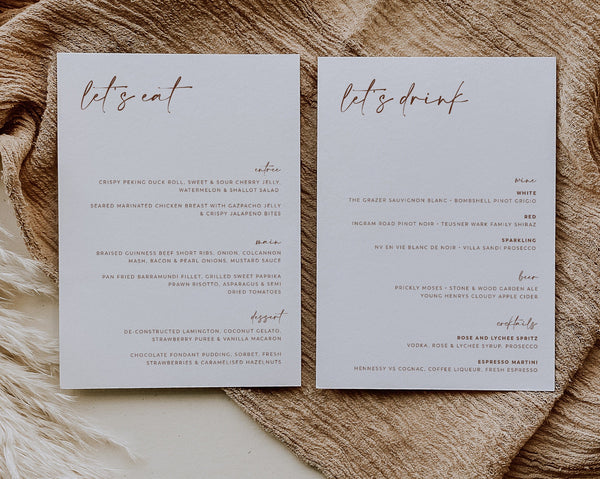 let's eat
entrée
CRISPY PEKING DUCK ROLL, SWEET & SOUR CHERRY JELLY,
WATERMELON & SHALLOT SALAD
SEARED MARINATED CHICKEN BREAST WITH GAZPACHO JELLY
& CRISPY JALAPENO BITES
main
BRAISED GUINNESS BEEF SHORT RIBS, ONION, COLCANNON
MASH, BACON & PEARL ONIONS, MUSTARD SAUCE
PAN FRIED BARRAMUNDI FILLET, GRILLED SWEET PAPRIKA
PRAWN RISOTTO, ASPARAGUS & SEMI
DRIED TOMATOES
dessert
DE-CONSTRUCTED LAMINGTON, COCONUT GELATO,
STRAWBERRY PUREE & VANILLA MACARON
CHOCOLATE FONDANT PUDDING, SORBET, FRESH
STRAWBERRIES & CARAMELISED HAZELNUTS
let's drink
wine
WHITE
THE GRAZER SAUVIGNON BLANC • BOMBSHELL PINOT GRIGIO
RED
INGRAM ROAD PINOT NOIR • TEUSNER WARK FAMILY SHIRAZ
SPARKLING
NV EN VIE BLANC DE NOIR • VILLA SANDI PROSECCO
beer
PRICKLY MOSES • STONE & WOOD GARDEN ALE
YOUNG HENRYS CLOUDY APPLE CIDER
cocktails
ROSE AND LYCHEE SPRITZ
VODKA, ROSE & LYCHEE SYRUP, PROSECCO
ESPRESSO MARTINI
HENNESSY VS COGNAC, COFFEE LIQUEUR, FRESH ESPRESSO